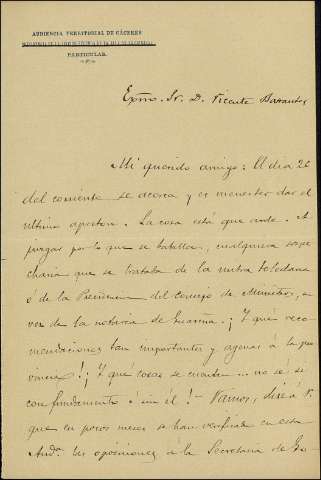 AUDIENCIA TERRITORIAL DE CÁCERES
PARTICULAR.
Exmo. Sr. D. Vicente Barrantes
Mi querido amigo: El dia 20
del corriente se acerca y es menester dar el
ultimo apreton. La cosa está que arde. A
juzgar por lo que se batalla, cualquiera sospe
charia que se trataba de la mitra toledana
ó de la Presidencia del Consejo de Ministros, en
vez de la notaria de Guareña. ¡Y qué reco-
mendaciones tan importantes y agenas á la pro
vincia! ¡Y qué cosas se cuentan... no sé si
con fundamento ó sin él! - Vamos, diré á V.
que en pocos meses se han verificado en esta
Aud.ª las oposiciones á la Secretaria de Go-